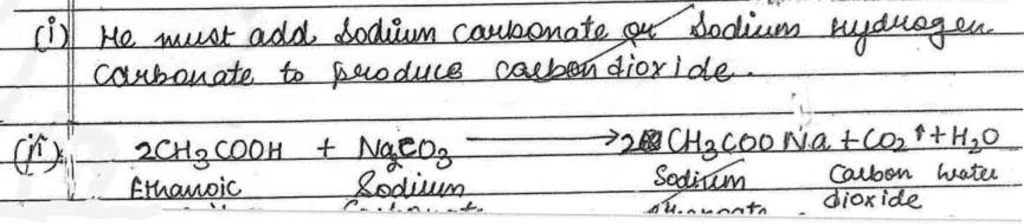 (i) He must add Sodium carbonate or Sodium Hydrogen
carbonate to produce carbon dioxide.
(ii) 2CH₃COOH + Na₂CO₃ → 2CH₃COONa + CO₂↑ + H₂O
Ethanoic Sodium Sodium Carbon water
dioxide